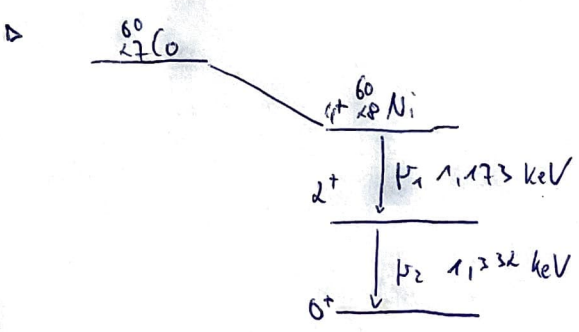 ⁶⁰₂₇Co
4⁺ ⁶⁰₂₈Ni
γ₁ 1,173 keV
2⁺
γ₂ 1,332 keV
0⁺